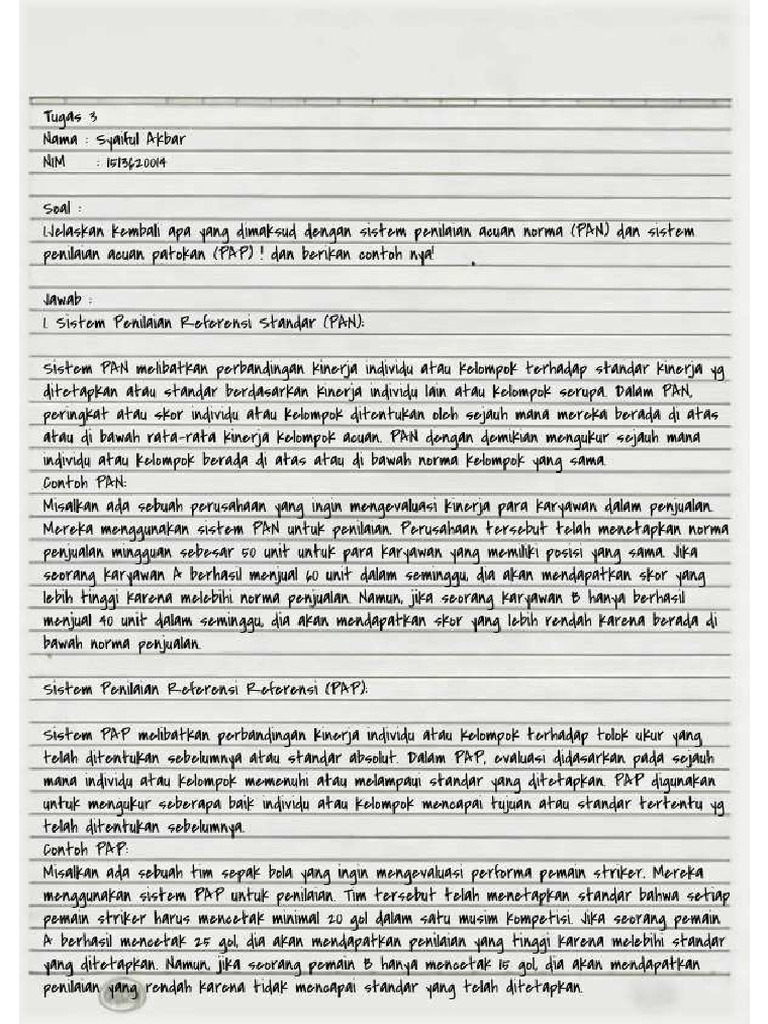 Tugas 3
Nama : Syaiful Akbar
NIM : 1513620014
Soal :
1.Jelaskan kembali apa yang dimaksud dengan sistem penilaian acuan norma (PAN) dan sistem
penilaian acuan patokan (PAP) ! dan berikan contoh nya!
Jawab :
1. Sistem Penilaian Referensi Standar (PAN):
Sistem PAN melibatkan perbandingan kinerja individu atau kelompok terhadap standar kinerja yg
ditetapkan atau standar berdasarkan kinerja individu lain atau kelompok serupa. Dalam PAN,
peringkat atau skor individu atau kelompok ditentukan oleh sejauh mana mereka berada di atas
atau di bawah rata-rata kinerja kelompok acuan. PAN dengan demikian mengukur sejauh mana
individu atau kelompok berada di atas atau di bawah norma kelompok yang sama.
Contoh PAN:
Misalkan ada sebuah perusahaan yang ingin mengevaluasi kinerja para karyawan dalam penjualan.
Mereka menggunakan sistem PAN untuk penilaian. Perusahaan tersebut telah menetapkan norma
penjualan mingguan sebesar 50 unit untuk para karyawan yang memiliki posisi yang sama. Jika
seorang karyawan A berhasil menjual 60 unit dalam seminggu, dia akan mendapatkan skor yang
lebih tinggi karena melebihi norma penjualan. Namun, jika seorang karyawan B hanya berhasil
menjual 40 unit dalam seminggu, dia akan mendapatkan skor yang lebih rendah karena berada di
bawah norma penjualan.
Sistem Penilaian Referensi Referensi (PAP):
Sistem PAP melibatkan perbandingan kinerja individu atau kelompok terhadap tolok ukur yang
telah ditentukan sebelumnya atau standar absolut. Dalam PAP, evaluasi didasarkan pada sejauh
mana individu atau kelompok memenuhi atau melampaui standar yang ditetapkan. PAP digunakan
untuk mengukur seberapa baik individu atau kelompok mencapai tujuan atau standar tertentu yg
telah ditentukan sebelumnya.
Contoh PAP:
Misalkan ada sebuah tim sepak bola yang ingin mengevaluasi performa pemain striker. Mereka
menggunakan sistem PAP untuk penilaian. Tim tersebut telah menetapkan standar bahwa setiap
pemain striker harus mencetak minimal 20 gol dalam satu musim kompetisi. Jika seorang pemain
A berhasil mencetak 25 gol, dia akan mendapatkan penilaian yang tinggi karena melebihi standar
yang ditetapkan. Namun, jika seorang pemain B hanya mencetak 15 gol, dia akan mendapatkan
penilaian yang rendah karena tidak mencapai standar yang telah ditetapkan.